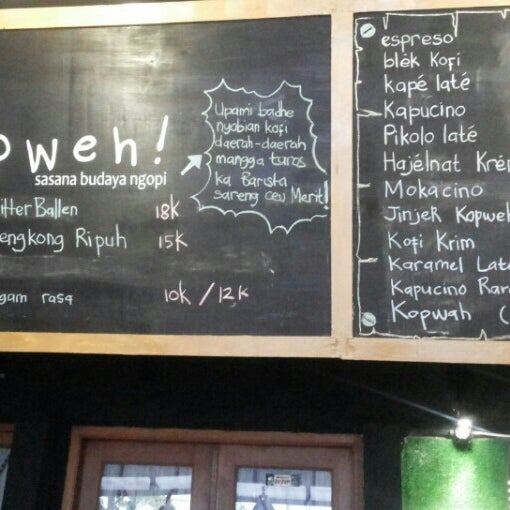 oweh!
sasana budaya ngopi
itter Ballen 18k
engkong Ripuh 15k
gam rasa 10k / 12k
Upami badhe
nyobian kofi
daerah-daerah
mangga turos
ka Barista
sareng ceu Merit!
espreso
blék kofi
kapé laté
Kapucino
Pikolo laté
Hajélnat Kré
Mokacino
Jinjek Kopweh
Kofi Krim
Karamel Lat
Kapucino Rar
Kopwah (